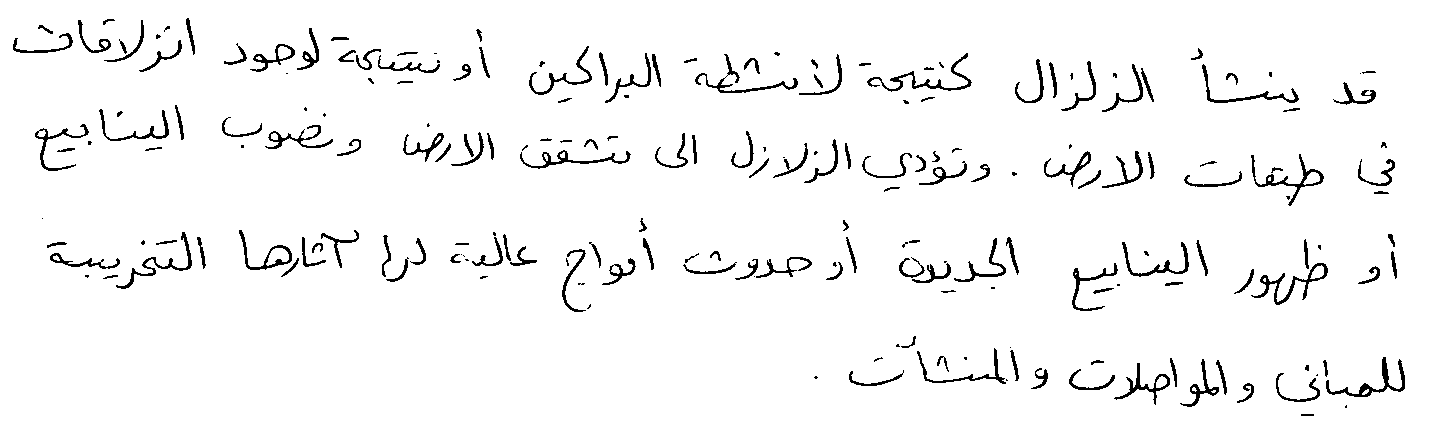 قد ينشأ الزلزال كنتيجة لأنشطة البراكين أو نتيجة لوجود انزلاقات
في طبقات الارض . وتؤدي الزلازل الى تشقق الارض ونضوب الينابيع
أو ظهور الينابيع الجديدة أو حدوث أمواج عالية لها آثارها التخريبية
للمباني والمواصلات والمنشآت .